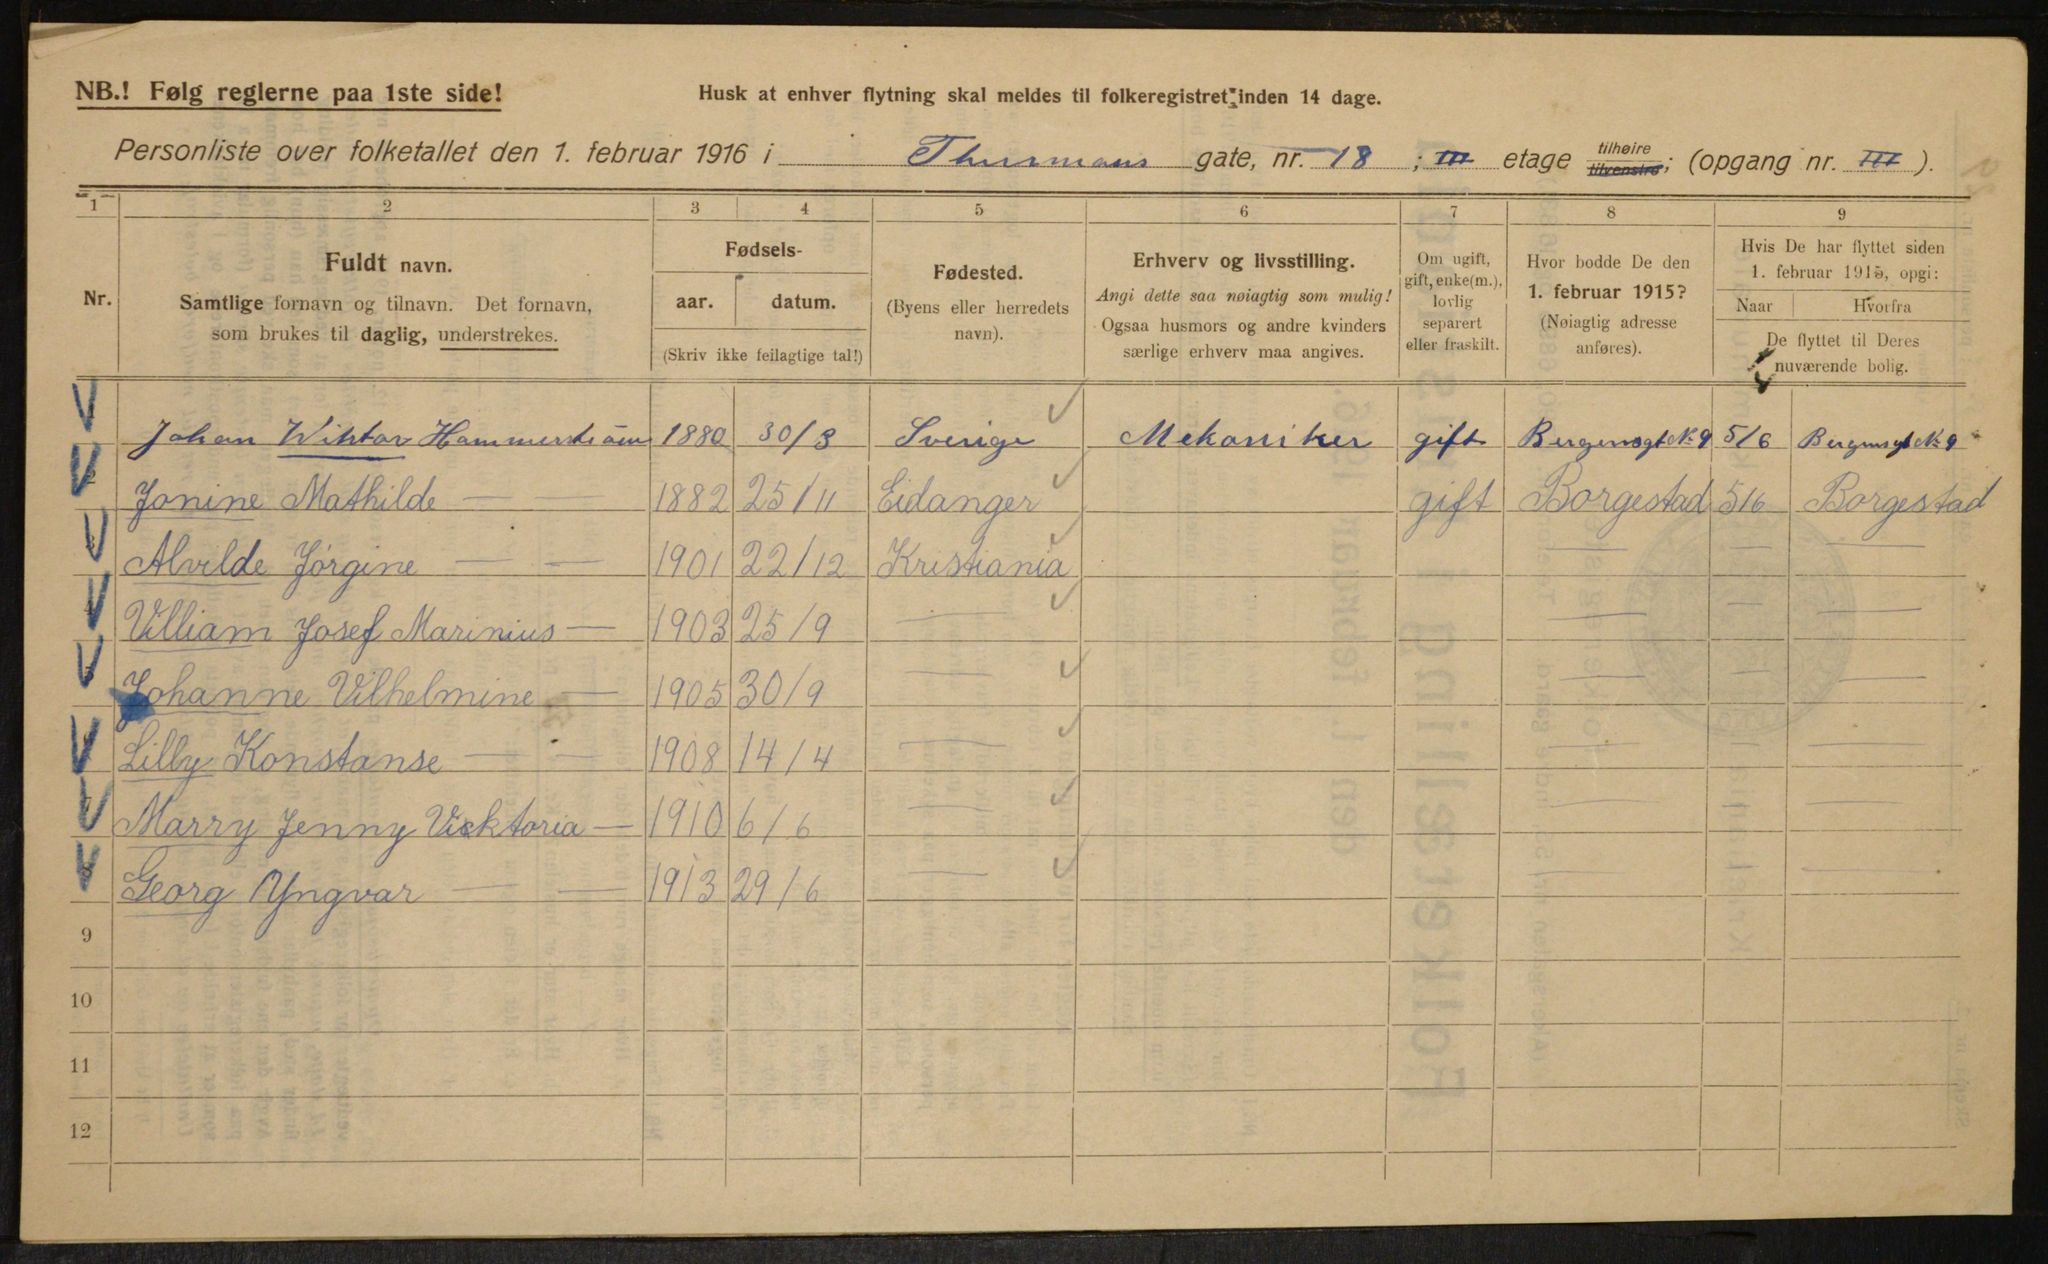 NB.! Følg reglerne paa 1ste side!
Husk at enhver flytning skal meldes til folkeregistret inden 14 dage.
Personliste over folketallet den 1. februar 1916 i Thurmans gate, nr. 18 ; III etage tilhøire tilvenstre; (opgang nr. III ).
1 2 3 4 5 6 7 8 9
Nr.
Fuldt navn.
Samtlige fornavn og tilnavn. Det fornavn,
som brukes til daglig, understrekes.
Fødsels-
aar. datum.
(Skriv ikke feilagtige tal!)
Fødested.
(Byens eller herredets
navn).
Erhverv og livsstilling.
Angi dette saa nøiagtig som mulig!
Ogsaa husmors og andre kvinders
særlige erhverv maa angives.
Om ugift,
gift, enke(m.),
lovlig
separert
eller fraskilt.
Hvor bodde De den
1. februar 1915?
(Nøiagtig adresse
anføres).
Hvis De har flyttet siden
1. februar 1915, opgi:
Naar Hvorfra
De flyttet til Deres
nuværende bolig.
Johan Wiktor Hammerström 1880 30/3 Sverige Mekaniker gift Bergensgt No 9 5/6 Bergensgt No 9
2 Jonine Mathilde — — 1882 25/11 Eidanger gift Borgestad 5/6 Borgestad
3 Alvilde Jörgine — — 1901 22/12 Kristiania — — —
4 Villiam Josef Marinius — 1903 25/9 — — — —
5 Johanne Vilhelmine — 1905 30/9 — — — —
6 Lilly Konstanse — — 1908 14/4 — — — —
7 Marry Jenny Vicktoria — 1910 6/6 — — — —
8 Georg Yngvar — — 1913 29/6 — — — —
9
10
11
12